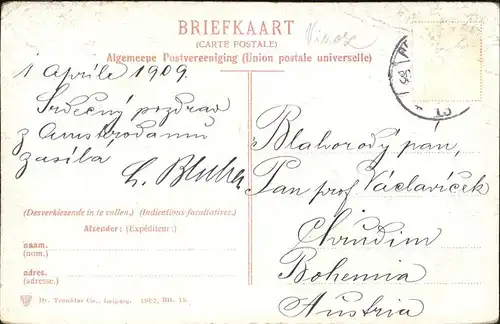 BRIEFKAART
(CARTE POSTALE)
Algemeene Postvereeniging (Union postale universelle)
1 Aprile 1909.
Srdečný pozdrav
z Amstrodamu
zasílá
Blahorodý pán,
Pan prof Václavíček
Chrudim
Bohemia
Austria
(Desverkiezende in te vullen.) (Indications facultatives.)
Afzender: (Expéditeur:)
naam.
(nom.)
adres.
(adresse.)
Dr. Trenkler Co., Leipzig. 1907,